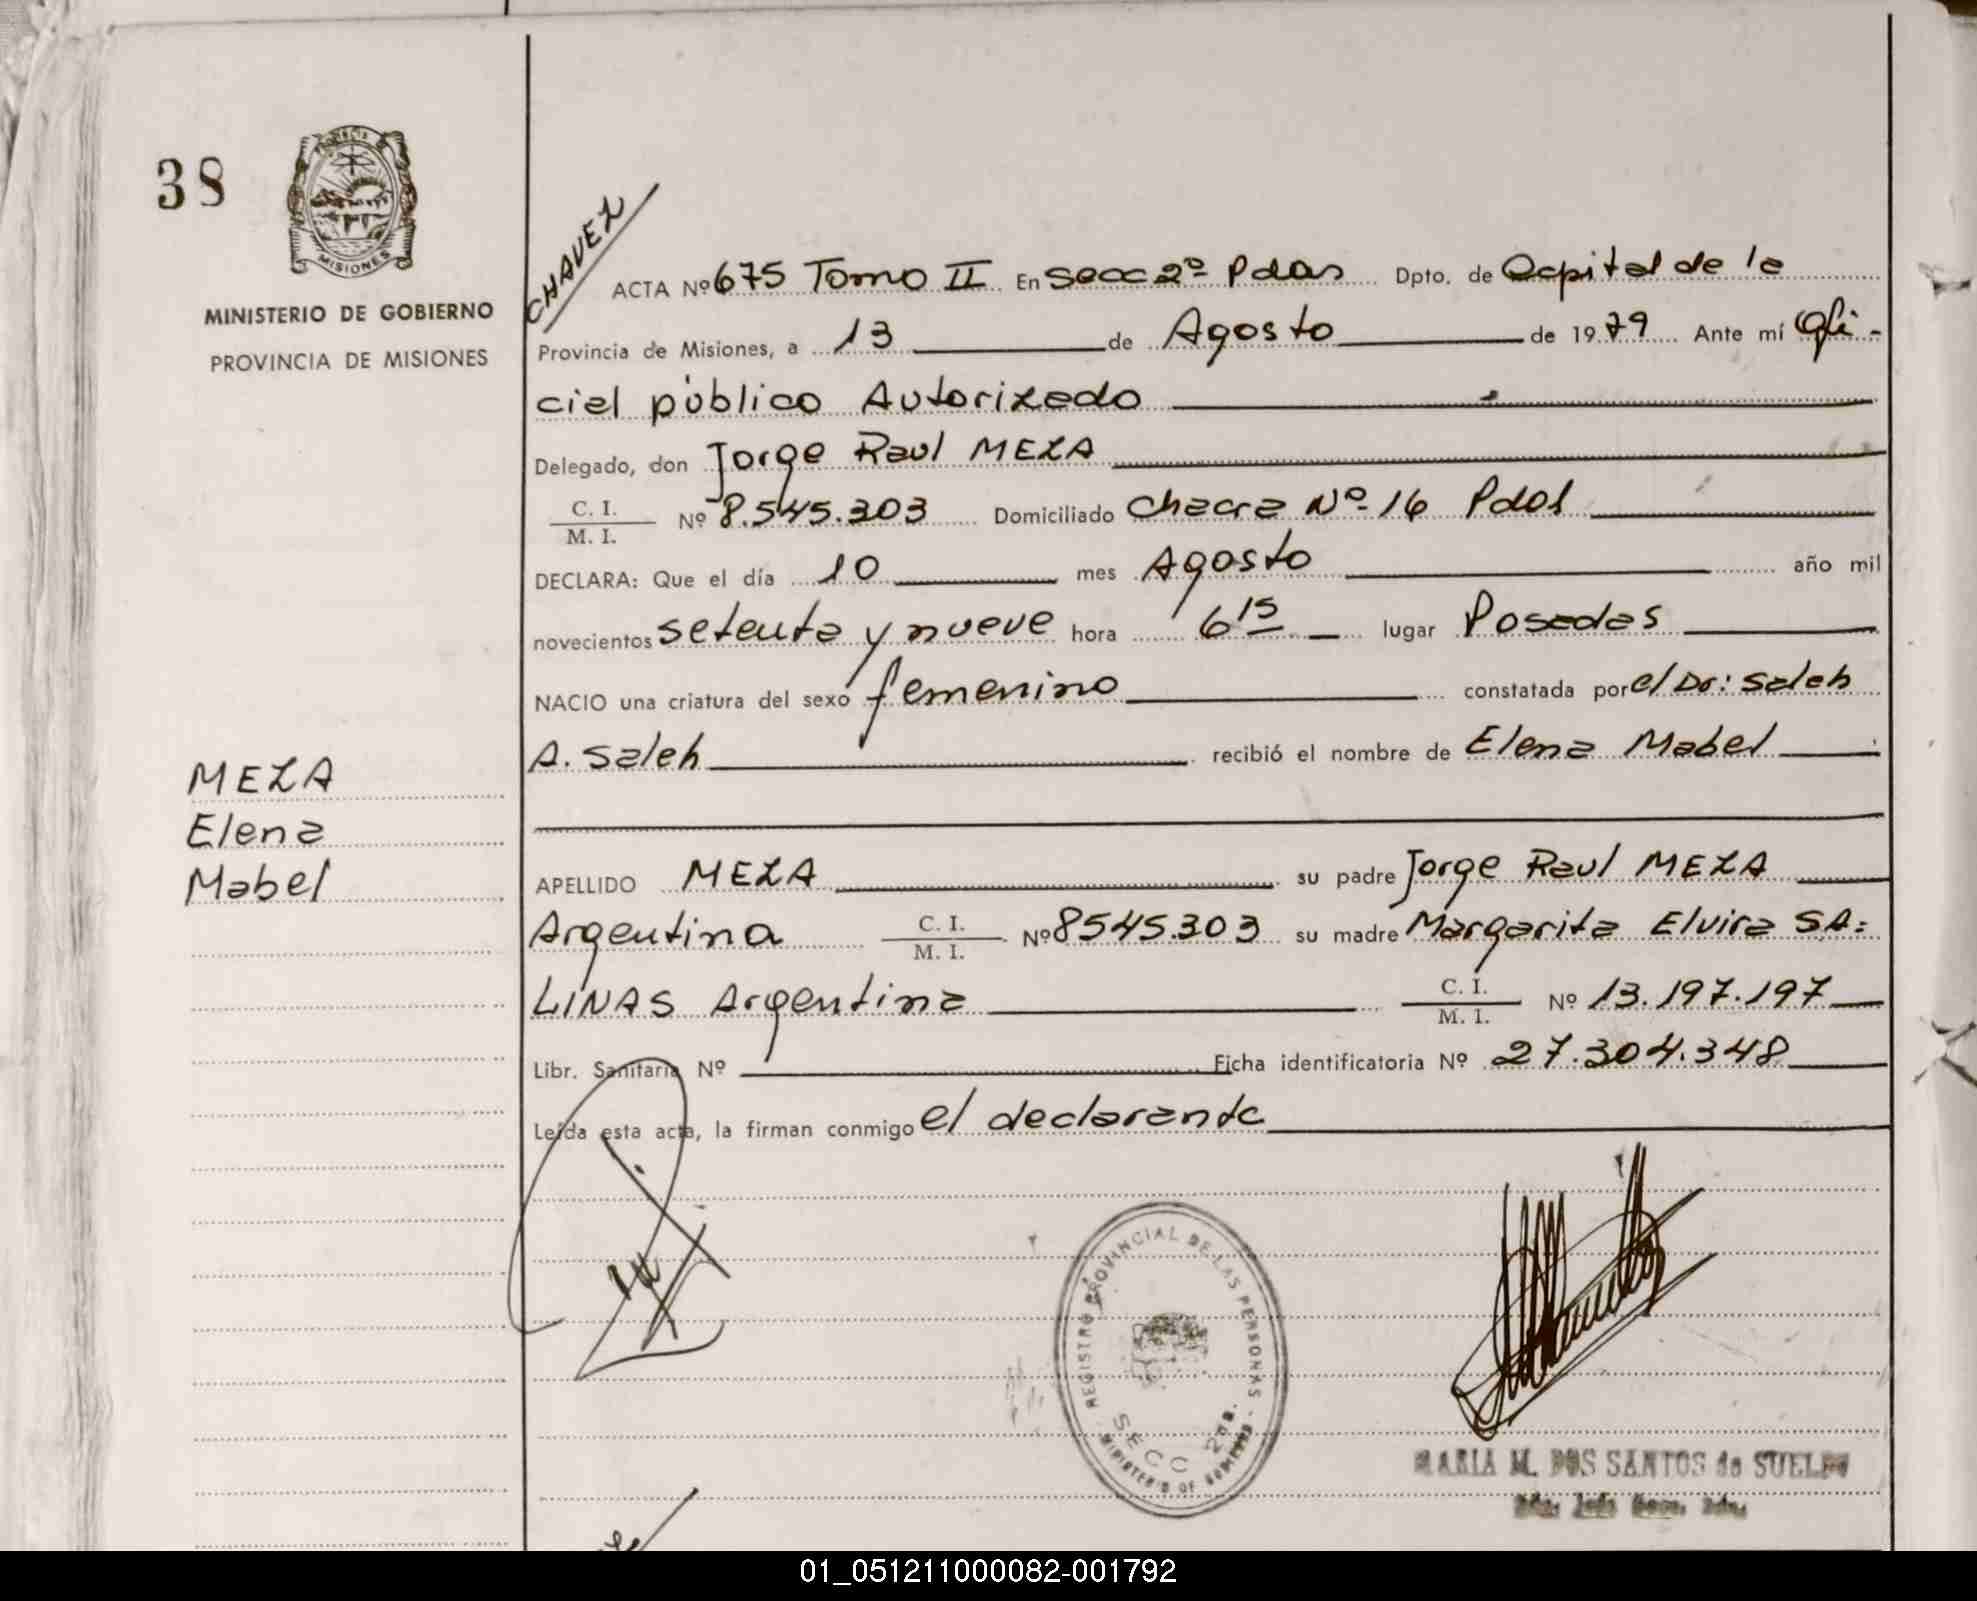 38
MISIONES
MINISTERIO DE GOBIERNO
PROVINCIA DE MISIONES
MEZA
Elena
Mabel
CHAVEZ
ACTA Nº 675 Tomo II En Secc 2º Pdas Dpto. de Capital de la
Provincia de Misiones, a 13 de Agosto de 1979 Ante mí Ofi-
cial público Autorizado
Delegado, don Jorge Raul MEZA
C. I.
M. I. Nº 8.545.303 Domiciliado Chacra Nº 16 Pdas
DECLARA: Que el día 10 mes Agosto año mil
novecientos setenta y nueve hora 6 15 lugar Posadas
NACIO una criatura del sexo femenino constatada por el Dr: Saleh
A. Saleh recibió el nombre de Elena Mabel
APELLIDO MEZA su padre Jorge Raul MEZA
Argentina C. I.
M. I. Nº 8545.303 su madre Margarita Elvira SA=
LINAS Argentina C. I.
M. I. Nº 13.197.197
Libr. Sanitaria Nº Ficha identificatoria Nº 27.304.348
Leída esta acta, la firman conmigo el declarante
REGISTRO PROVINCIAL DE LAS PERSONAS
SECC 2da.
MINISTERIO DE GOBIERNO
MARIA M. DOS SANTOS de SUELDO
01_051211000082-001792